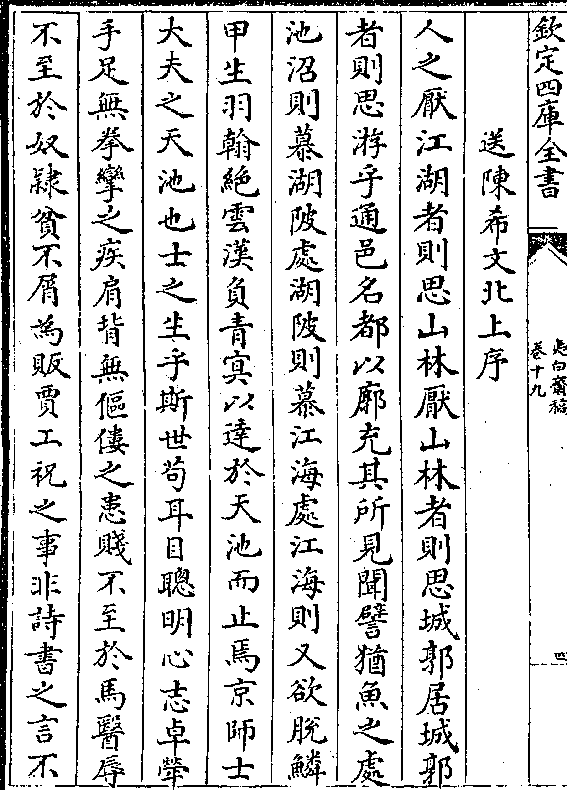 欽定四庫全書
卷十九
四
送陳希文北上序
人之厭江湖者則思山林厭山林者則思城郭居城郭
者則思游乎通邑名都以廓充其所見聞譬猶魚之處
池沼則慕湖陂處湖陂則慕江海處江海則又欲脫鱗
甲生羽翰絶雲漢負青冥以達於天池而止焉京師士
大夫之天池也士之生乎斯世茍耳目聰明心志卓犖
手足無拳攣之疾肩背無傴僂之患賤不至於馬醫辱
不至於奴隸貧不屑為販賈工祝之事非詩書之言不